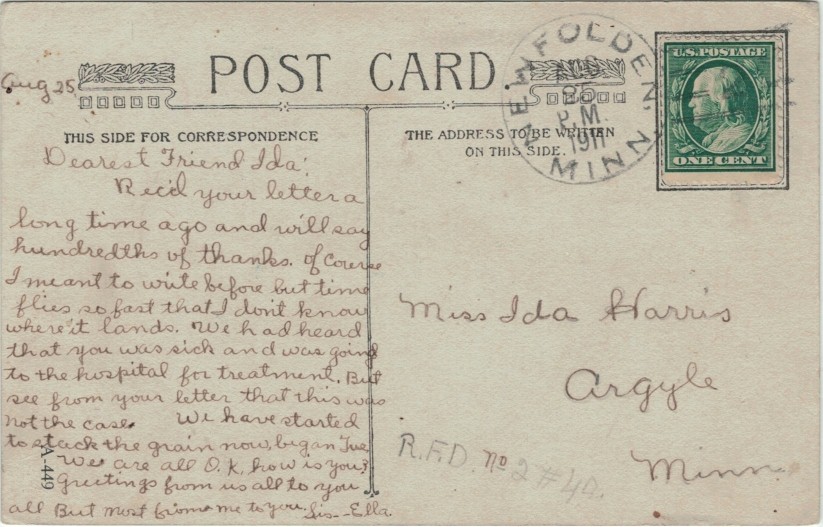 Aug 25
POST CARD.
NEWFOLDEN,
MINN.
AUG
25
P.M.
1911
U.S. POSTAGE
ONE CENT
THIS SIDE FOR CORRESPONDENCE
THE ADDRESS TO BE WRITTEN
ON THIS SIDE.
Dearest Friend Ida:
Rec'd your letter a
long time ago and will say
hundredths of thanks. Of course
I meant to write before but time
flies so fast that I don't know
where it lands. We had heard
that you was sick and was going
to the hospital for treatment. But
see from your letter that this was
not the case. We have started
to stack the grain now, began Tue.
We are all O.K. how is you?
Greetings from us all to you
all But most from me to you. Sis-Ella.
A-449
Miss Ida Harris
Argyle
Minn.
R.F.D. No 2 # 40.